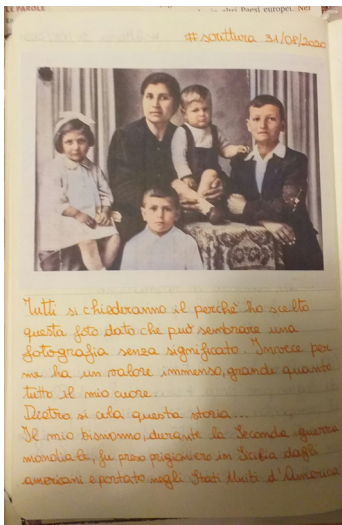 LE PAROLE
altri Paesi europei. Nei
#scrittura 31/08/2020
Tutti si chiederanno il perchè ho scelto
questa foto dato che può sembrare una
fotografia senza significato. Invece per
me ha un valore immenso, grande quanto
tutto il mio cuore...
Dietro si cela questa storia...
Il mio bisnonno, durante la Seconda guerra
mondiale, fu preso prigioniero in Sicilia dagli
americani e portato negli Stati Uniti d'America